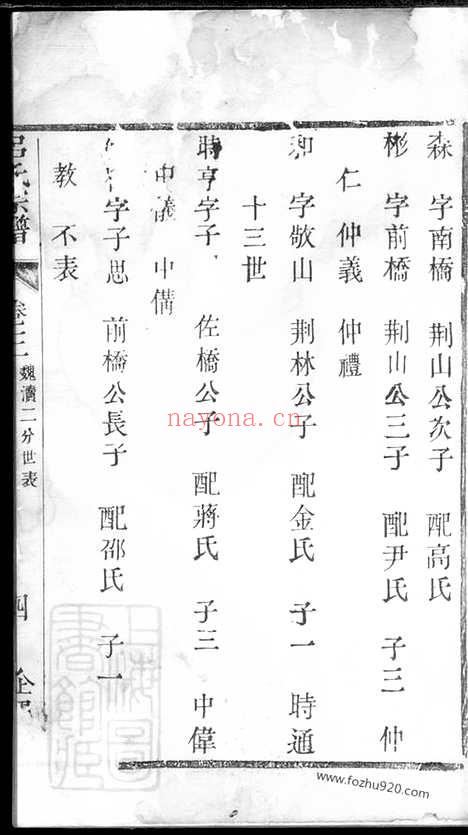 森　字南橋　荆山公次子　配高氏
彬　字前橋　荆山公三子　配尹氏　子三　仲
仁　仲義　仲禮
和　字敬山　荆林公子　配金氏　子一　時通
十三世
時亨字子　佐橋公子　配蔣氏　子三　中偉
中議　中備
字子思　前橋公長子　配邵氏　子一
教　不表
呂氏宗譜　卷之二　魏瀆二分世表　四
上海圖書館藏
nayona.cn
www.fozhu920.com